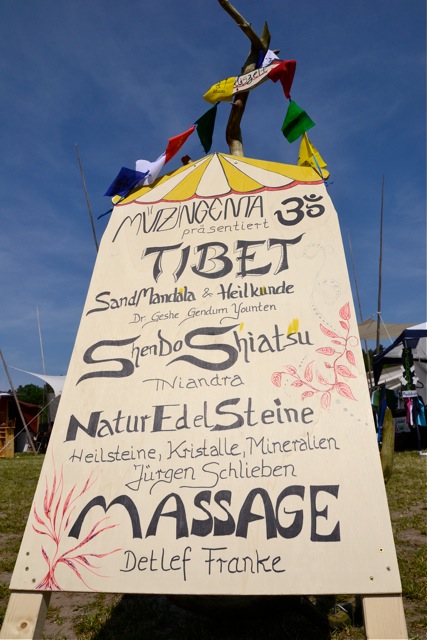 MÜTZINGENTA ॐ
präsentiert
TIBET
SandMandala & Heilkunde
Dr Geshe Gendum Younten
ShenDo Shiatsu
TNiandra
NaturEdelSteine
Heilsteine, Kristalle, Mineralien
Jürgen Schlieben
MASSAGE
Detlef Franke